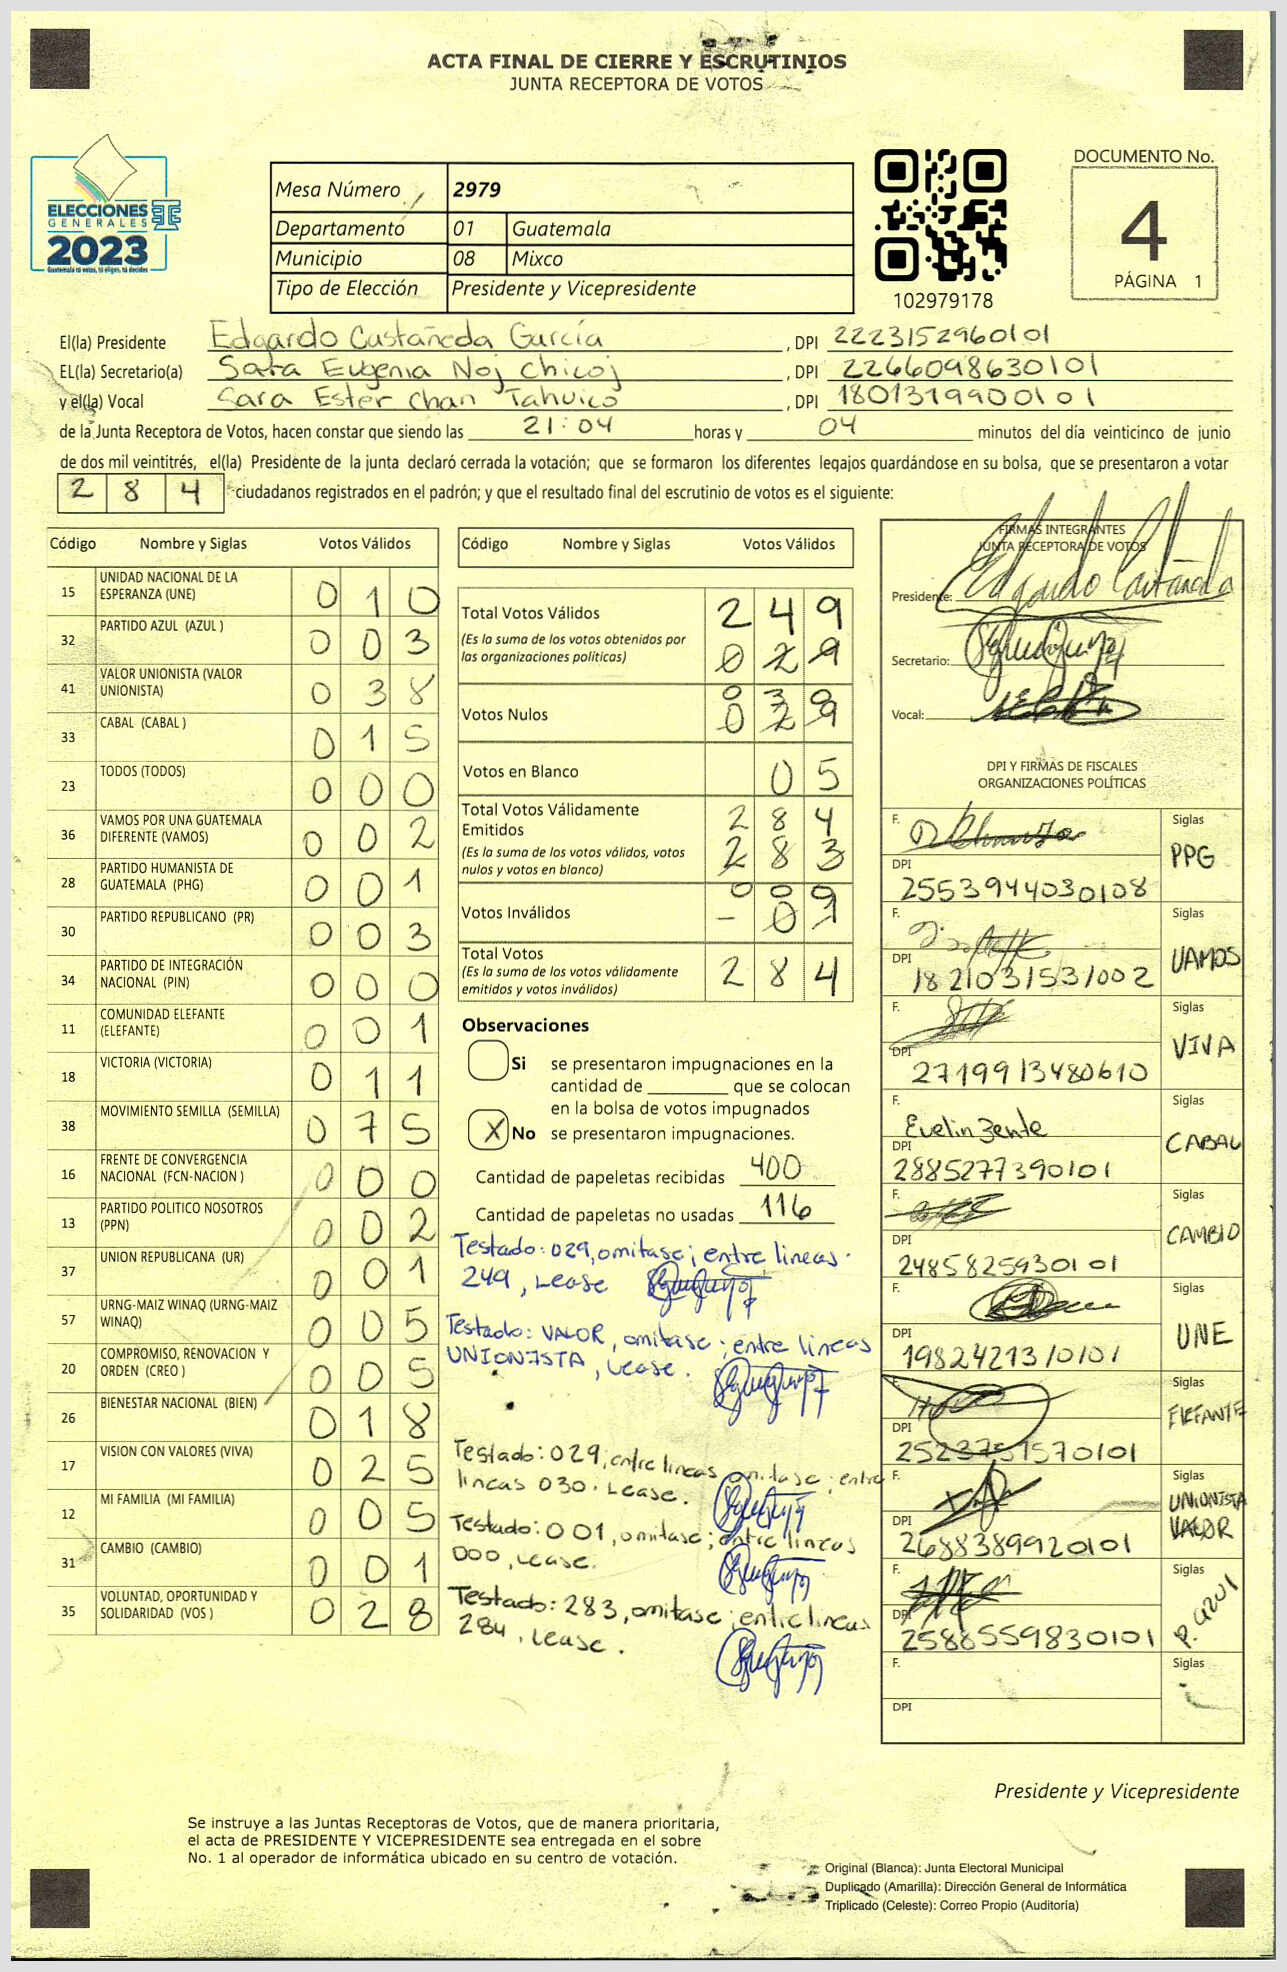 ACTA FINAL DE CIERRE Y ESCRUTINIOS
JUNTA RECEPTORA DE VOTOS
ELECCIONES
GENERALES
2023
Guatemala tú votas, tú eliges, tú decides
Mesa Número 2979
Departamento 01 Guatemala
Municipio 08 Mixco
Tipo de Elección Presidente y Vicepresidente
102979178
DOCUMENTO No.
4
PÁGINA 1
El(la) Presidente Edgardo Castañeda García , DPI 2223152960101
EL(la) Secretario(a) Sara Eugenia Noj Chicoj , DPI 2266098630101
y el(la) Vocal Sara Ester Chan Tahuico , DPI 1801319900101
de la Junta Receptora de Votos, hacen constar que siendo las 21:04 horas y 04 minutos del día veinticinco de junio
de dos mil veintitrés, el(la) Presidente de la junta declaró cerrada la votación; que se formaron los diferentes legajos guardándose en su bolsa, que se presentaron a votar
284 ciudadanos registrados en el padrón; y que el resultado final del escrutinio de votos es el siguiente:
Código Nombre y Siglas Votos Válidos
15 UNIDAD NACIONAL DE LA ESPERANZA (UNE) 010
32 PARTIDO AZUL (AZUL ) 003
41 VALOR UNIONISTA (VALOR UNIONISTA) 038
33 CABAL (CABAL ) 015
23 TODOS (TODOS) 000
36 VAMOS POR UNA GUATEMALA DIFERENTE (VAMOS) 002
28 PARTIDO HUMANISTA DE GUATEMALA (PHG) 001
30 PARTIDO REPUBLICANO (PR) 003
34 PARTIDO DE INTEGRACIÓN NACIONAL (PIN) 000
11 COMUNIDAD ELEFANTE (ELEFANTE) 001
18 VICTORIA (VICTORIA) 011
38 MOVIMIENTO SEMILLA (SEMILLA) 075
16 FRENTE DE CONVERGENCIA NACIONAL (FCN-NACION ) 000
13 PARTIDO POLITICO NOSOTROS (PPN) 002
37 UNION REPUBLICANA (UR) 001
57 URNG-MAIZ WINAQ (URNG-MAIZ WINAQ) 005
20 COMPROMISO, RENOVACION Y ORDEN (CREO ) 005
26 BIENESTAR NACIONAL (BIEN) 018
17 VISION CON VALORES (VIVA) 025
12 MI FAMILIA (MI FAMILIA) 005
31 CAMBIO (CAMBIO) 001
35 VOLUNTAD, OPORTUNIDAD Y SOLIDARIDAD (VOS ) 028
Código Nombre y Siglas Votos Válidos
Total Votos Válidos 249
(Es la suma de los votos obtenidos por las organizaciones políticas) 029
Votos Nulos 030
029
Votos en Blanco 05
Total Votos Válidamente Emitidos 284
(Es la suma de los votos válidos, votos nulos y votos en blanco) 283
Votos Inválidos 000
- 01
Total Votos
(Es la suma de los votos válidamente emitidos y votos inválidos) 284
Observaciones
Si se presentaron impugnaciones en la
cantidad de ________ que se colocan
en la bolsa de votos impugnados
X No se presentaron impugnaciones.
Cantidad de papeletas recibidas 400
Cantidad de papeletas no usadas 116
Testado: 029, omitase; entre lineas
249, Lease
Testado: VALOR, omitase; entre lineas
UNIONISTA, Lease.
Testado: 029; entre lineas omitase; entre
lineas 030. Lease.
Testado: 001, omitase; entre lineas
000, Lease.
Testado: 283, omitase; entre lineas
284, Lease.
FIRMAS INTEGRANTES
JUNTA RECEPTORA DE VOTOS
Presidente: Edgardo Castañeda
Secretario:
Vocal:
DPI Y FIRMAS DE FISCALES
ORGANIZACIONES POLÍTICAS
F. Siglas
DPI 2553944030108 PPG
F. Siglas
DPI 1821031531002 VAMOS
F. Siglas
DPI 2719913480610 VIVA
F. Evelin Zente Siglas
DPI 2885277390101 CABAL
F. Siglas
DPI 2485825930101 CAMBIO
F. Siglas
DPI 1982421310101 UNE
F. Siglas
DPI 2523751570101 ELEFANTE
F. Siglas
DPI 2688389920101 UNIONISTA VALOR
F. Siglas
DPI 2588559830101 P. azul
F. Siglas
DPI
Presidente y Vicepresidente
Se instruye a las Juntas Receptoras de Votos, que de manera prioritaria,
el acta de PRESIDENTE Y VICEPRESIDENTE sea entregada en el sobre
No. 1 al operador de informática ubicado en su centro de votación.
Original (Blanca): Junta Electoral Municipal
Duplicado (Amarilla): Dirección General de Informática
Triplicado (Celeste): Correo Propio (Auditoría)